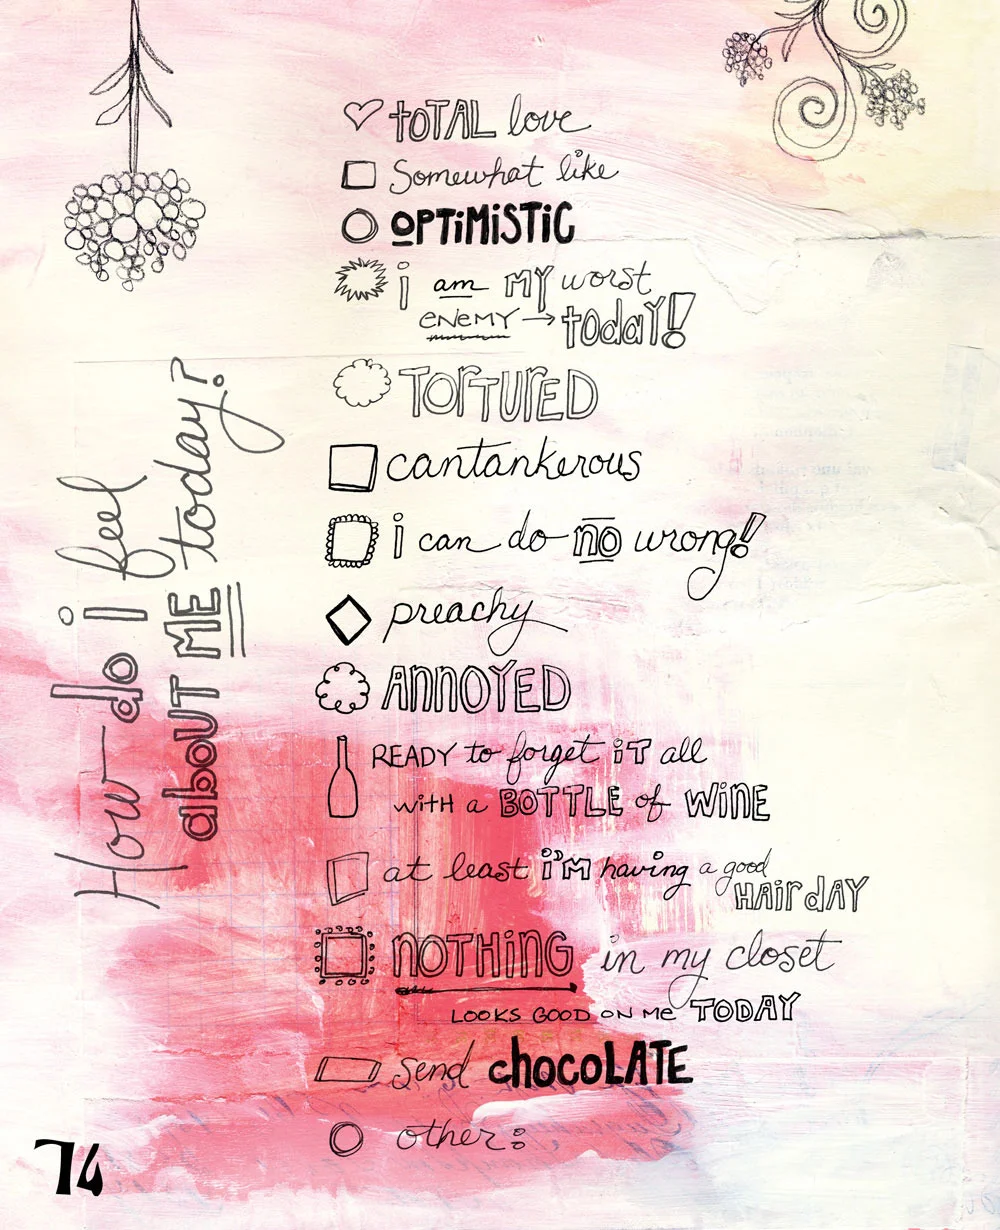 How do i feel
about ME today?
tOTAL love
Somewhat like
OPTiMiSTiC
i am MY worst
eNeMY → todaY!
TOrTUrED
cantankerous
i can do no wrong!
preachy
ANNOYED
READY to forget iT all
with a BOTTLE of WiNE
at least i'M having a good
HAir dAY
nOTHiNG in my closet
LOOKS GOOD ON Me TODAY
send chocoLATE
other:
74